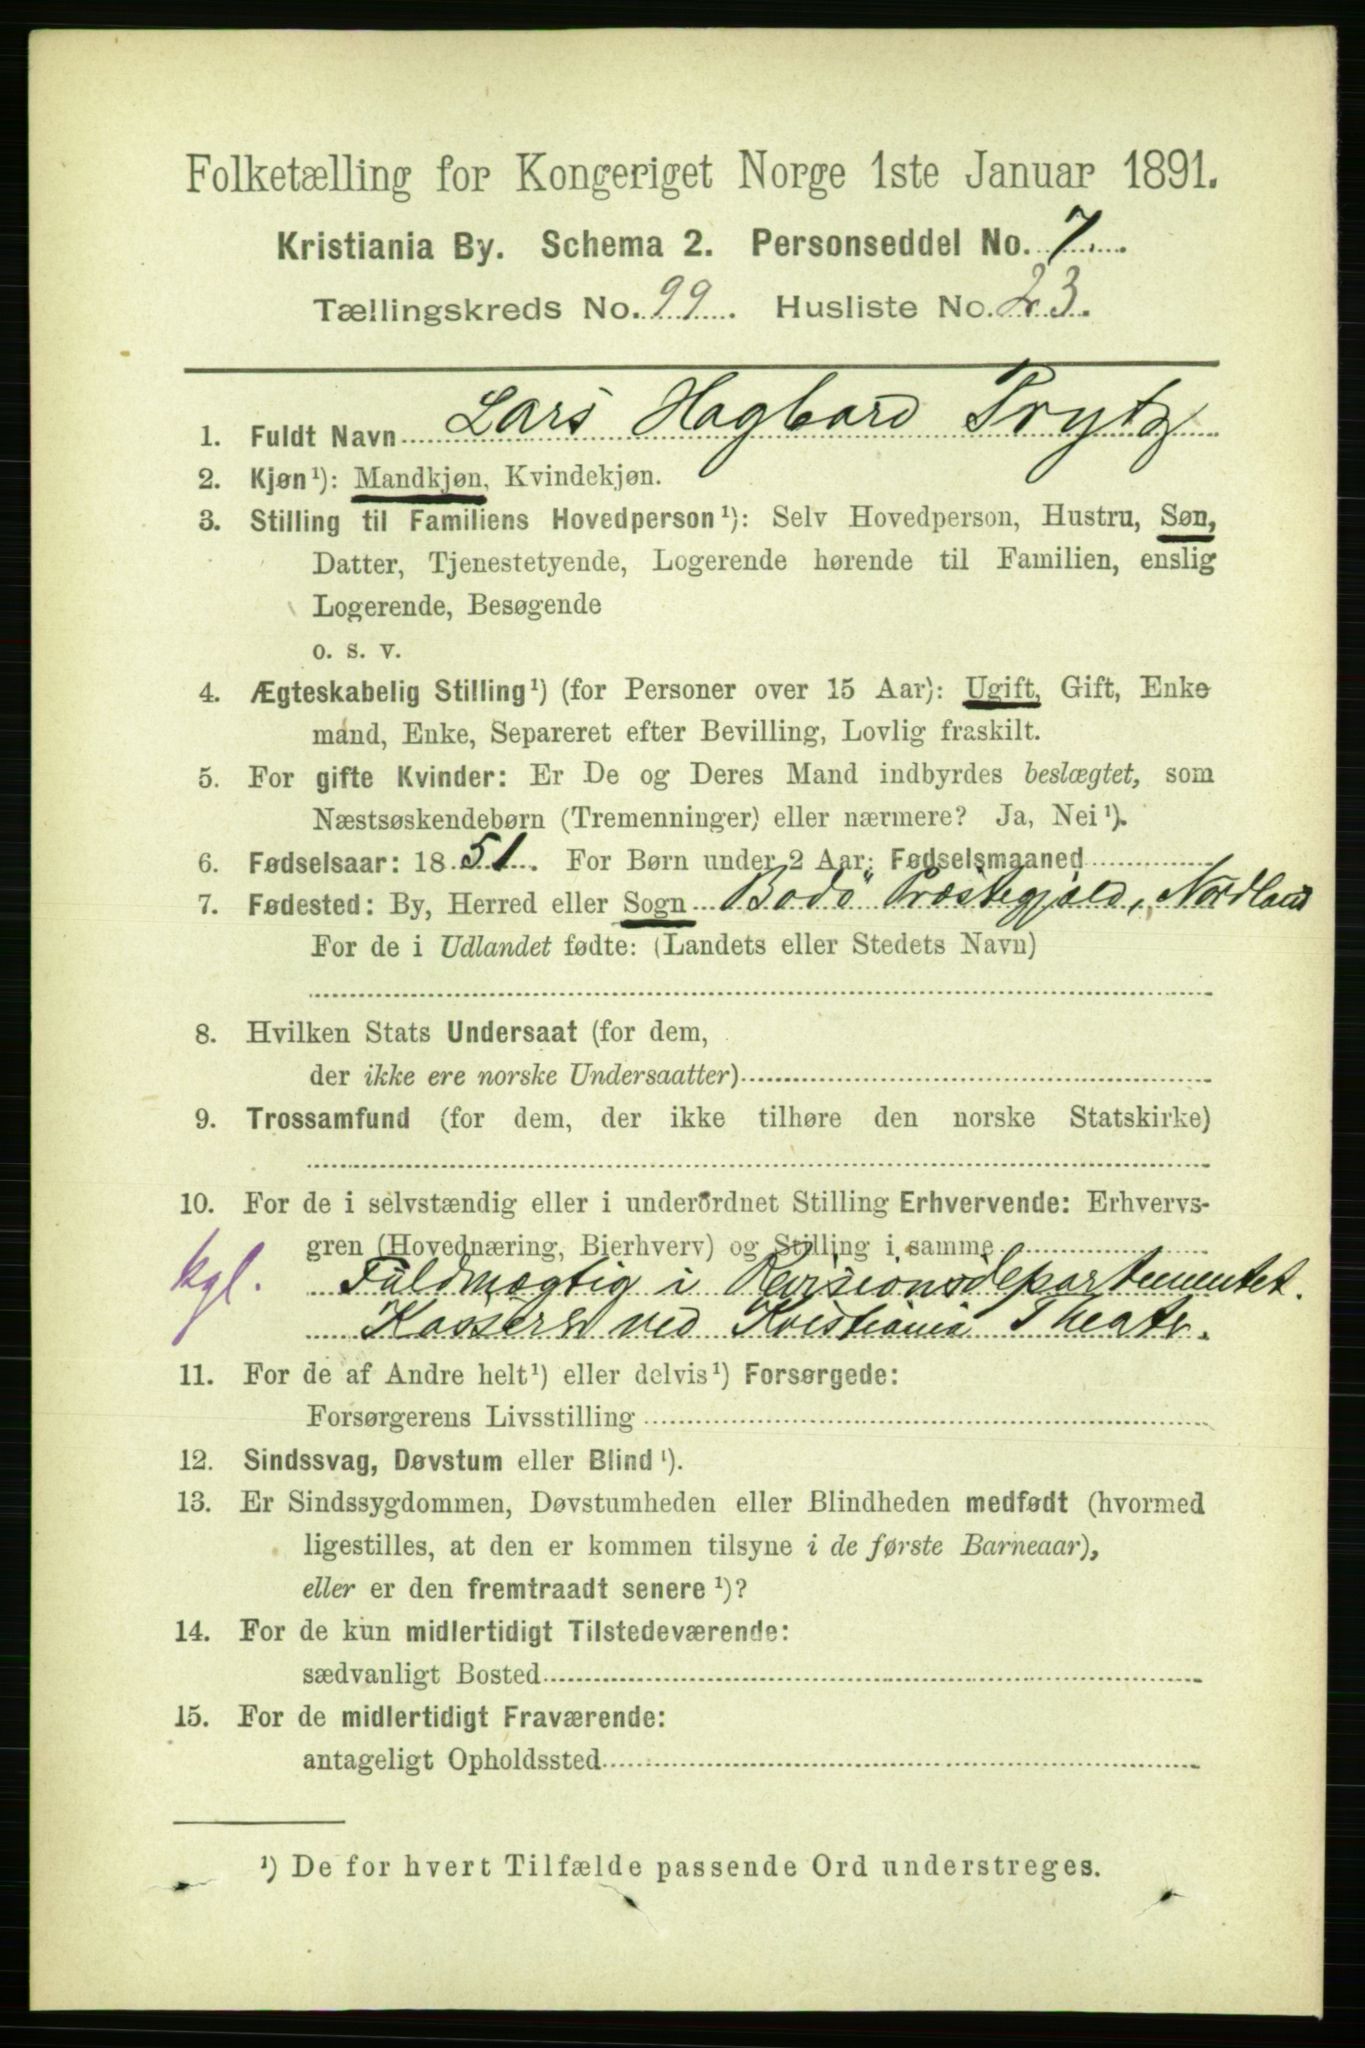 Folketælling for Kongeriget Norge 1ste Januar 1891.
Kristiania By. Schema 2. Personseddel No. 7
Tællingskreds No. 99. Husliste No. 23.
1. Fuldt Navn Lars Hagbard Prytz
2. Kjøn¹): Mandkjøn, Kvindekjøn.
3. Stilling til Familiens Hovedperson¹): Selv Hovedperson, Hustru, Søn,
Datter, Tjenestetyende, Logerende hørende til Familien, enslig
Logerende, Besøgende
o. s. v.
4. Ægteskabelig Stilling¹) (for Personer over 15 Aar): Ugift, Gift, Enke
mand, Enke, Separeret efter Bevilling, Lovlig fraskilt.
5. For gifte Kvinder: Er De og Deres Mand indbyrdes beslægtet, som
Næstsøskendebørn (Tremenninger) eller nærmere? Ja, Nei¹).
6. Fødselsaar: 1851. For Børn under 2 Aar: Fødselsmaaned
7. Fødested: By, Herred eller Sogn Bodö Præstegjæld, Nordland
For de i Udlandet fødte: (Landets eller Stedets Navn)
8. Hvilken Stats Undersaat (for dem,
der ikke ere norske Undersaatter)
9. Trossamfund (for dem, der ikke tilhøre den norske Statskirke)
10. For de i selvstændig eller i underordnet Stilling Erhvervende: Erhvervs-
gren (Hovednæring, Bierhverv) og Stilling i samme
kgl. Fuldmægtig i Revisionsdepartementet.
Kasserer ved Kristiania Theater.
11. For de af Andre helt¹) eller delvis¹) Forsørgede:
Forsørgerens Livsstilling
12. Sindssvag, Døvstum eller Blind¹).
13. Er Sindssygdommen, Døvstumheden eller Blindheden medfødt (hvormed
ligestilles, at den er kommen tilsyne i de første Barneaar),
eller er den fremtraadt senere¹)?
14. For de kun midlertidigt Tilstedeværende:
sædvanligt Bosted
15. For de midlertidigt Fraværende:
antageligt Opholdssted
¹) De for hvert Tilfælde passende Ord understreges.